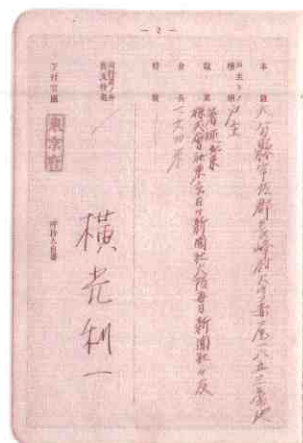 — 2 —
本籍
大分縣宇佐郡長峰村大字赤尾一八五三番地
戸主トノ續柄
戸主
職業
著述業
株式會社東京日日新聞社大阪毎日新聞社々友
身長
特徴
下付官廳
東京府
所持人自署
横光利一